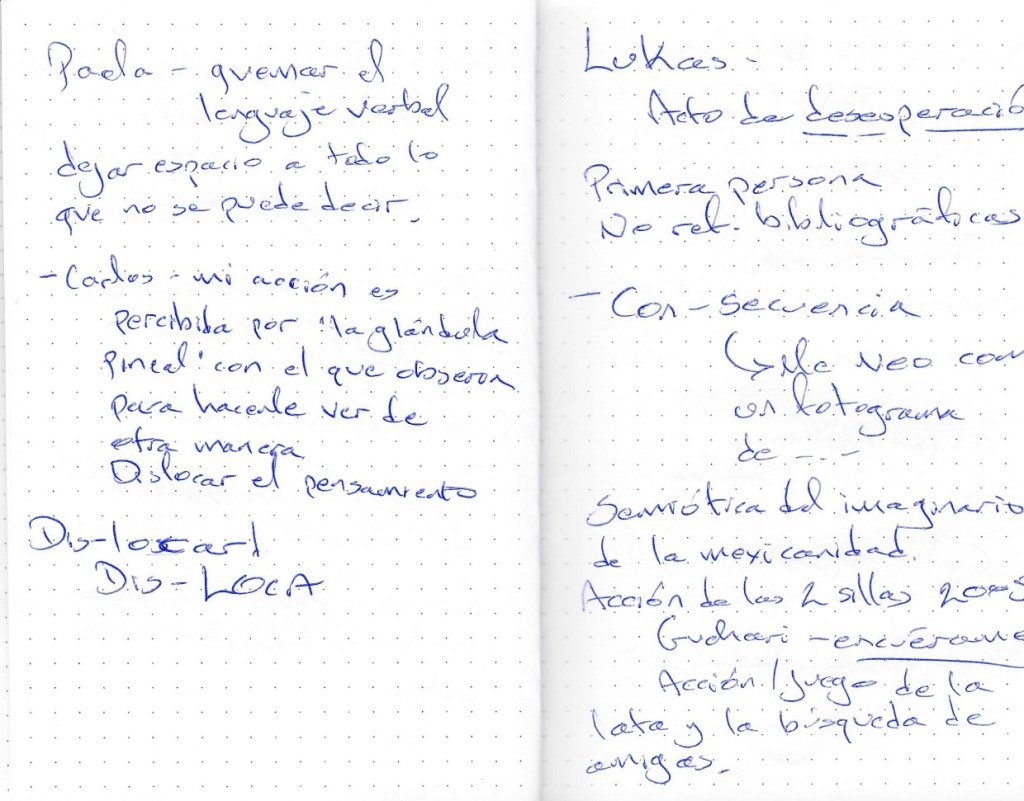 Paola - quemar el
lenguaje verbal
dejar espacio a todo lo
que no se puede decir.
- Carlos - mi acción es
percibida por "la glándula
pineal" con el que observan
para hacerle ver de
otra manera
Dislocar el pensamiento
Dis-locar
Dis-LOCA
Lukas -
Acto de desesperació
Primera persona
No ref. bibliográficas
- Con-secuencia
↳ Me veo com
un fotograma
de ----
Semiótica del imaginario
de la mexicanidad.
Acción de las 2 sillas
- encuérame
Acción/juego de la
lata y la búsqueda de
amigas.